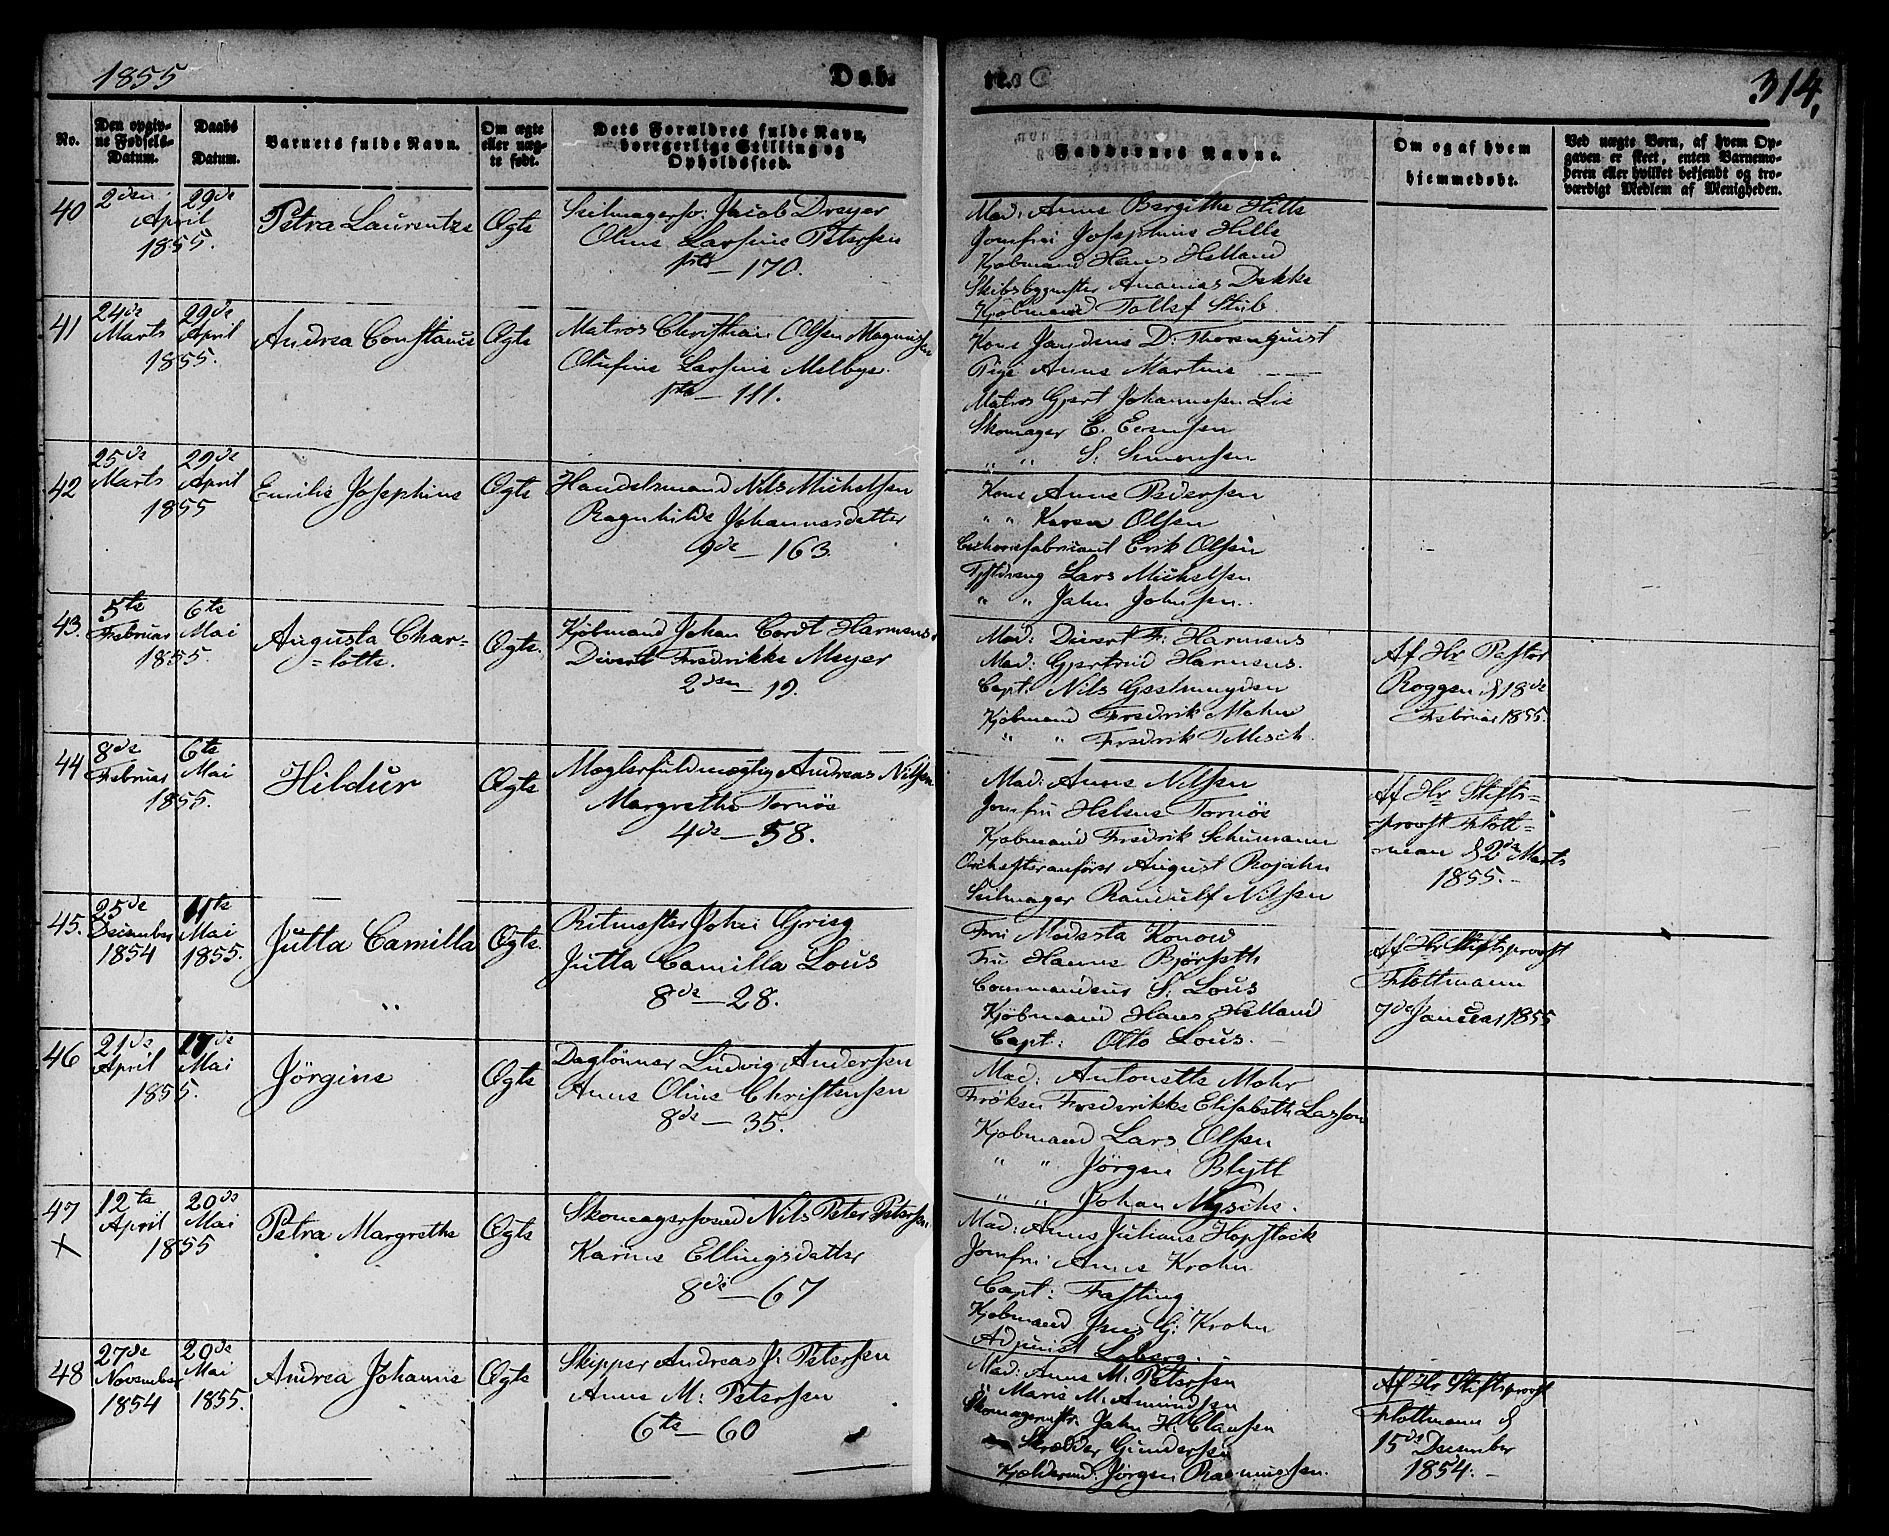 1855
Døb-
te.
314.
No.
Den opgiv-
ne Fødsels-
Datum.
Daabs
Datum.
Barnets fulde Navn.
Om ægte
eller uæg-
te født.
Dets Forældres fulde Navn,
borgerlige Stilling og
Opholdssted.
Faddernes Navne.
Om og af hvem
hjemmedøbt.
Ved uægte Børn, af hvem Op-
gaven er skeet, enten Barnemo-
deren eller hvilket bekjendt og tro-
værdigt Medlem af Menigheden.
40
2den
April
1855.
29de
Petra Laurentze
Ægte
Seilmagersv: Jacob Dreyer
Oline Larsine Petersen
1ste — 170.
Mad: Anne Birgithe Hille
Jomfru Josephine Hille
Kjøbmand Hans Helland
Skibsbygmester Ananias Dekke
Kjøbmand Tollef Stub
41
24de
Marts
29de
April
1855.
Andrea Constance
Ægte
Matros Christian Olsen Magnussen
Olufine Larsine Melbye.
1ste — 111.
Kone Jandine D: Thorenquist
Pige Anne Martine
Matros Gjert Johannesen Lie
Skomager C. Evensen
" " S: Simonsen
42
25de
Marts
29de
April
1855
Emilie Josephine
Ægte
Handelsmand Nils Michelsen
Ragnhilde Johannesdatter
9de — 163
Kone Anne Pedersen
" " Karen Olsen
Cichoriefabrikant Erik Olsen
Lars Michelsen
" " Jahn Johnsen.
43.
5te
Februar
6te
Mai
1855.
Augusta Char-
=lotte.
Ægte.
Kjøbmand Johan Cordt Harmens.
Divert Fredrikke Meyer
2den — 19.
Mad: Divert Fr: Harmens
Mad: Gjertrud Harmens.
Capt: Nils Geelmuyden
Kjøbmand Fredrik Mohn
" " Fredrik T Mesch.
Af Hr Pastor
Roggen d 18de
Februar 1855.
44
8de
Februar
6te
Mai
1855.
Hildur
Ægte
Mæglerfuldmægtig Andreas Nilsen
Margrethe Tornöe
4de — 58.
Mad: Anne Nilsen
Jomfru Helene Tornöe
Kjøbmand Fredrik Schumann
Orchesteranfører August Rojahn
Seilmager Randulf Nilsen
Af Hr Stifts-
provst Flott-
=man d 2de Marts
1855.-
45.
25de
December
1854
11te
Mai
1855.
Jutta Camilla
Ægte.
Ritmester John Grieg
Jutta Camilla Lous
8de — 28.
Fru Modesta Konow
Fru Hanne Bjørseth
Commandeur S. Lous
Kjøbmand Hans Helland
Capt: Otto Lous.
Af Hr Stiftsprovst
Flottmann
7de Januar 1855
46
21de
April
17de
Mai
1855.
Jörgine
Ægte
Daglönner Ludvig Andersen
Anne Oline Christensen
8de — 35.
Mad: Antonette Mohr
Frøken Frederikke Elisabeth Lasson
Kjøbmand Lars Olsen
" " Jörgen Blytt
" " Johan Mysche.
47
X
12te
April
20de
Mai
1855
Petra Margrethe
Ægte
Skomagersvend Nils Peter Petersen
Karine Ellingsdatter
8de — 67
Mad: Anne Juliane Hopstock
Jomfru Anne Krohn
Capt: Fasting
Kjøbmand Jens G: Krohn
Adjunct Løberg.
48
27de
November
1854
20de
Mai
1855.
Andrea Johanne
Ægte
Skipper Andreas J. Petersen
Anne M: Petersen
6te — 60
Mad: Anne M. Petersen
" Marie M. Amundsen
Skomagermstr: Jahn H. Clausen
Skrædder Gundersen
Jörgen Rasmussen.
Af Hr Stiftsprovst
Flottmann d
15de December
1854.-